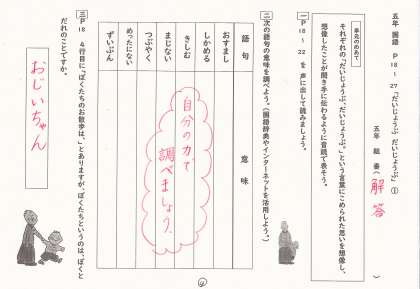 五年 国語 P18~27「だいじょうぶ だいじょうぶ」①
五年 組 番( 解答 )
単元のめあて
それぞれの「だいじょうぶ、だいじょうぶ。」という言葉にこめられた思いを想像し、
想像したことが聞き手に伝わるように音読で表そう。
一 P18~22を声に出して読みましょう。
二 次の語句の意味を調べよう。(国語辞典やインターネットを活用しよう。)
語句
意味
おすまし
しかめる
きしむ
まじない
つぶやく
めったにない
ずいぶん
自分の力で
調べましょう。
三 P18 4行目に「ぼくたちのお散歩は、」とありますが、「ぼくたち」というのは、「ぼく」と
だれのことですか。
おじいちゃん